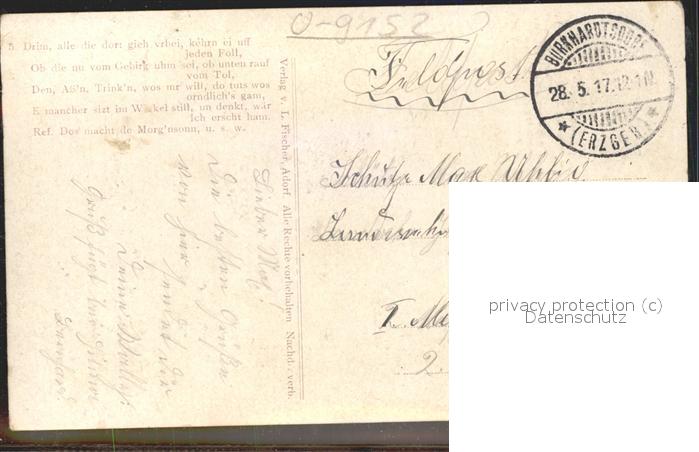 O-9152
5. Drim, alle die dort gieh vrbei, kehrn ei uff
jeden Foll,
Ob die nu vom Gebirg uhm sei, ob unten rauf
vom Tol,
Den, Aß'n, Trink'n, wos mr will, do tuts wos
orndlich's gam,
E mancher sizt im Winkel still, un denkt, wär
Ich erscht ham.
Ref. Dos macht de Morg'nsonn, u. s. w.
Verlag v. L. Fischer, Adorf. Alle Rechte vorbehalten Nachd. verb.
Feldpost
BURKHARDTSDORF
28. 5. 17. 12-1 N.
* (ERZGEB.) *
Schütze Max
I.
2.
Lieber Max!
Die besten Grüße
von hier sendet dir
Deine
Gruß fügt bei
privacy protection (c)
Datenschutz